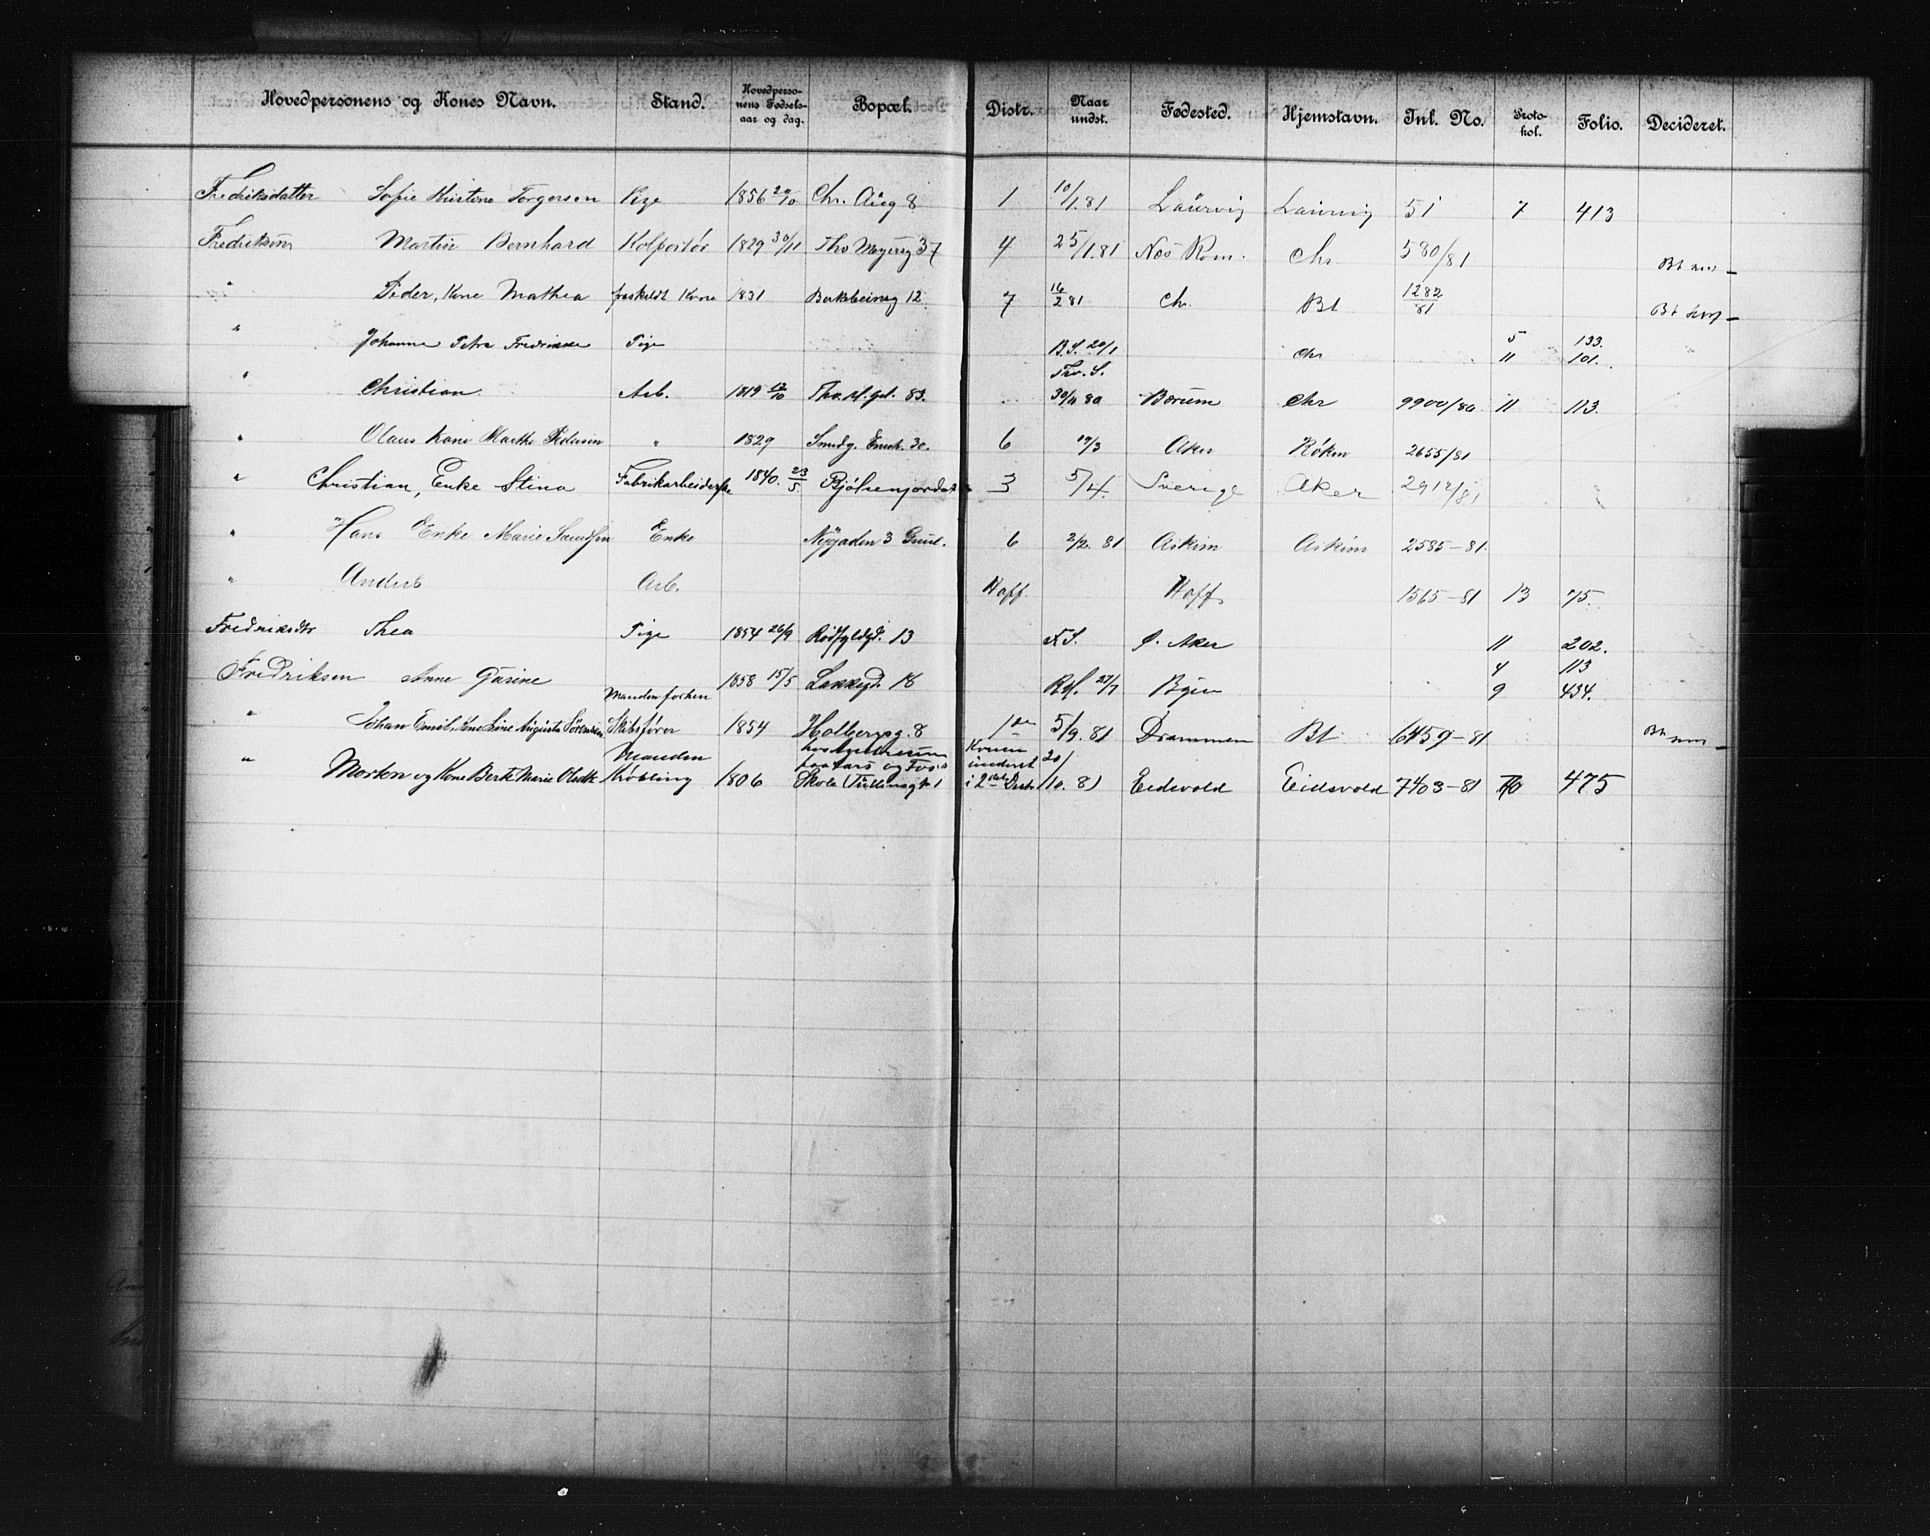 Hovedpersonens og Kones Navn. Stand. Hovedpersonens Fødselsaar og dag. Bopæl. Distr. Naar undst. Fødested. Hjemstavn. Inl. No. Protokol. Folio. Decideret.
Fredriksdatter Sofie Kristine Torgersen Pige 1856 29/10 Chr. Aug 8 1 10/1.81 Laurvig Laurvig 51 7 413
Fredriksen Martin Bernhard Kolportør 1829 30/11 Thv Meyersg 37 4 25/1.81 Nes Rom. Chr 580/81 Bt
" Peder, Kone Mathea fraskildt Kone 1831 12 7 16/2 81 Chr. Bt 1282/81 Bt
" Johanne Petra Fredrikke Pige B.S. 20/1 Chr 5 133.
11 101.
" Christian Arb. 1819 Thv. M. gd. 83. Thv. S. 30/11 80 Bærum Chr 9900/80 11 113.
" Olaus Kone Marthe Pedersen " 1829 Smedg. Enerh. 30. 6 19/3 Aker Røken 2655/81
" Christian, Enke Stina Fabrikarbeiderske 1840. 23/5 Bjølsenjordet 3 5/4. Sverige Aker 2912/81
" Hans Enke Marie Enke Nygaden 3 Grønl. 6 2/2. 81 Askim Askim 2585-81.
" Anders Arb. Hoff Hoff 1565-81 13 75.
Fredriksdtr Thea Pige 1854 26/9 Rødfyldgd. 13 F.S. Ø. Aker 11 202.
4 113
Fredriksen Anne Gusine 1858 15/5 Lakkegd. 18 Rgf. 27/7 9 434.
" Johan Emil, Kone Line Augusta Sørensen Manden forhen Skibsfører 1854 Holbergsg. 8 1ste 5/9. 81 Drammen Bt 6459-81 Bt
" Morten og Kone Berte Marie Olsdtr Manden Krøbling 1806 Skole Tullinsgt 1 Konen underst i 2det Distr 20/10. 81 Eidsvold Eidsvold 7403-81 10 475